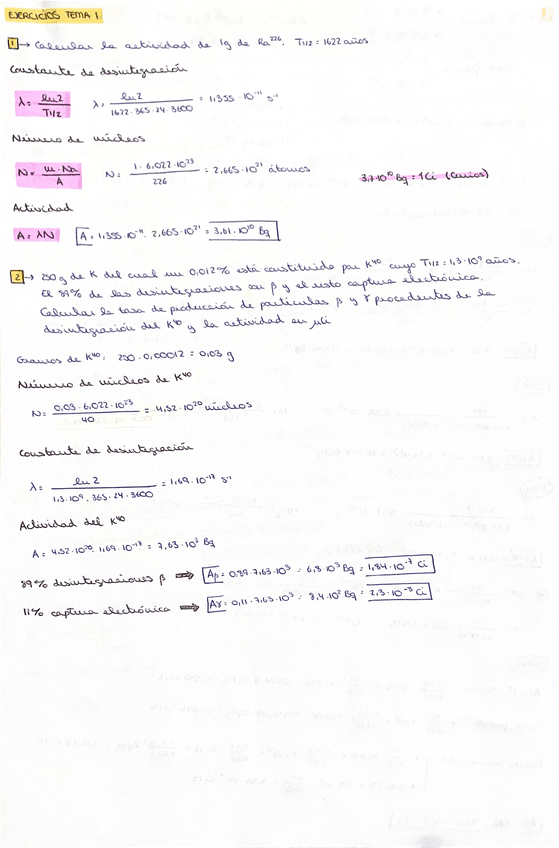 EJERCICIOS TEMA 1
1 → Calcular la actividad de 1g de Ra²²⁶. T1/2 = 1622 años
Constante de desintegración
λ = ln2 / T1/2 λ = ln2 / 1622·365·24·3600 = 1,355·10⁻¹¹ s⁻¹
Número de núcleos
N = m·Na / A N = 1·6,022·10²³ / 226 = 2,665·10²¹ átomos 3,7·10¹⁰ Bq = 1 Ci (Curios)
Actividad
A = λN A = 1,355·10⁻¹¹ · 2,665·10²¹ = 3,61·10¹⁰ Bq
2 → 250 g de K del cual un 0,012% está constituido por K⁴⁰ cuyo T1/2 = 1,3·10⁹ años.
El 89% de las desintegraciones son β y el resto captura electrónica.
Calcular la tasa de producción de partículas β y γ procedentes de la
desintegración del K⁴⁰ y la actividad en μCi
Gramos de K⁴⁰: 250·0,00012 = 0,03 g
Número de núcleos de K⁴⁰
N = 0,03·6,022·10²³ / 40 = 4,52·10²⁰ núcleos
Constante de desintegración
λ = ln 2 / 1,3·10⁹·365·24·3600 = 1,69·10⁻¹⁷ s⁻¹
Actividad del K⁴⁰
A = 4,52·10²⁰ · 1,69·10⁻¹⁷ = 7,63·10³ Bq
89% desintegraciones β ⟹ Aβ = 0,89·7,63·10³ = 6,8·10³ Bq = 1,84·10⁻⁷ Ci
11% captura electrónica ⟹ Aγ = 0,11·7,63·10³ = 8,4·10² Bq = 2,3·10⁻⁸ Ci